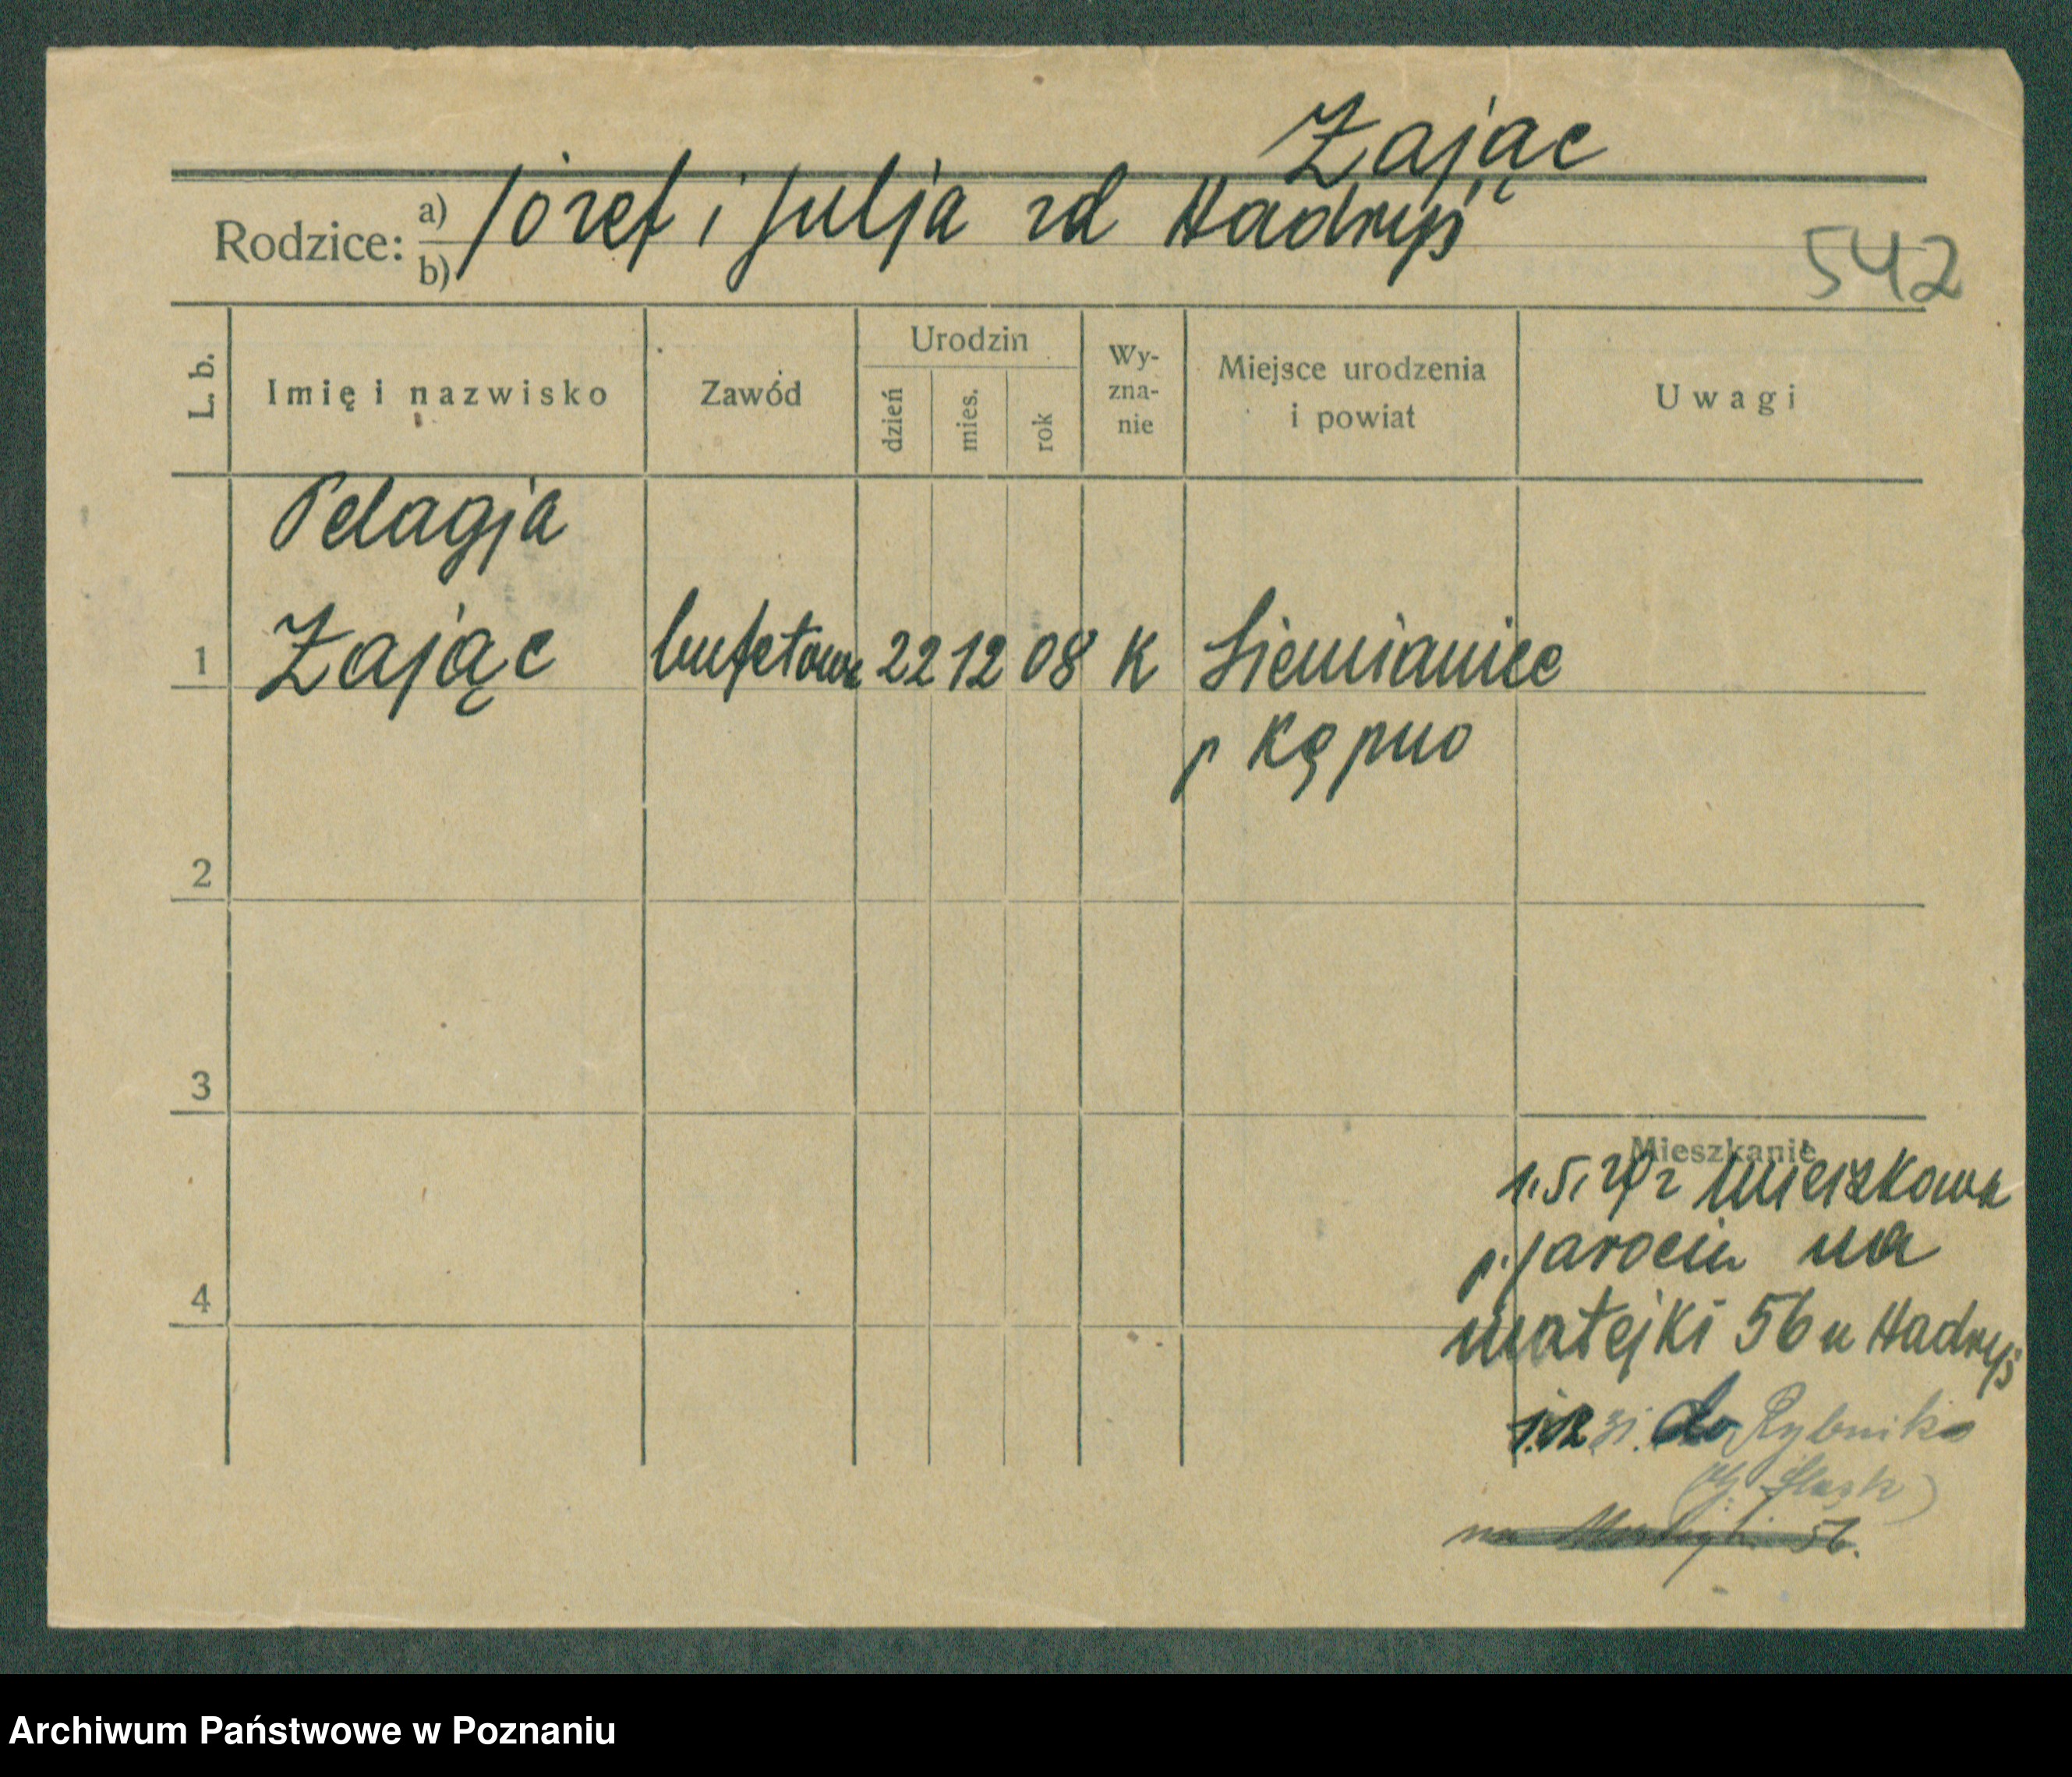 Zając
Rodzice: a) Józef i Julja zd Hadryś
b)
542
L. b. Imię i nazwisko Zawód Urodzin dzień mies. rok Wy-zna-nie Miejsce urodzenia i powiat Uwagi
Pelagja
1 Zając bufetowa 22 12 08 K Siemianice
p Kępno
2
3
Mieszkanie
1.5. z Mieszkowa
p. Jarocin na
4
Matejki 56 u Hadryś
1.12 31. do Rybnika
(G. Śląsk)
na Matejki 56.
Archiwum Państwowe w Poznaniu